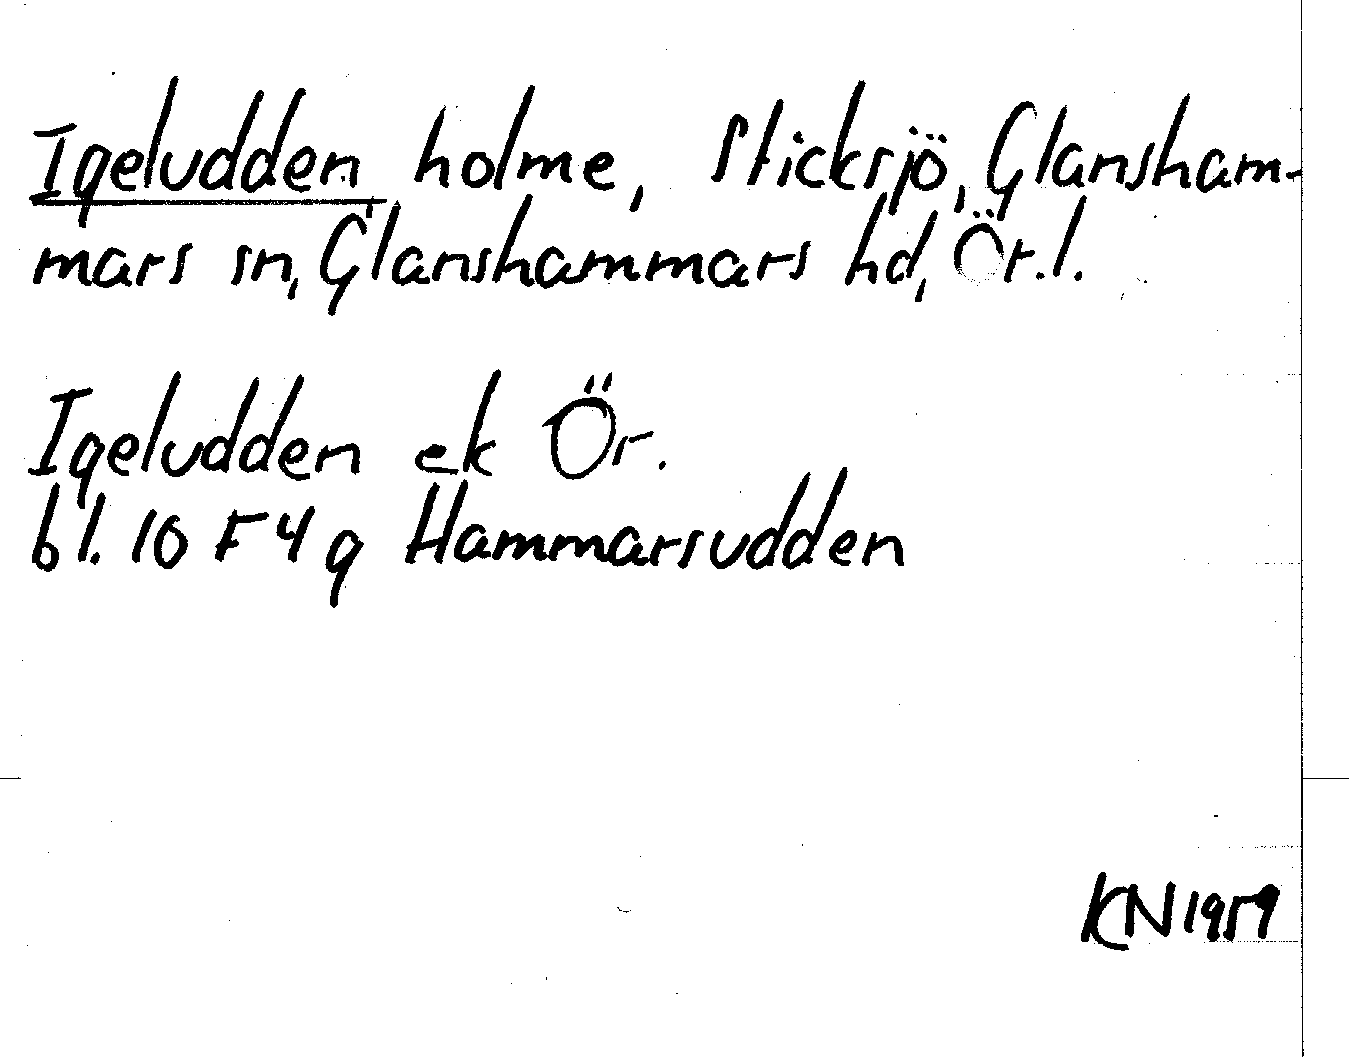 Igeludden holme, Sticksjö, Glansham-
mars sn, Glanshammars hd, Ör.l.
Igeludden ek Ör.
bl. 10 F 4 g Hammarsudden
KN 1959